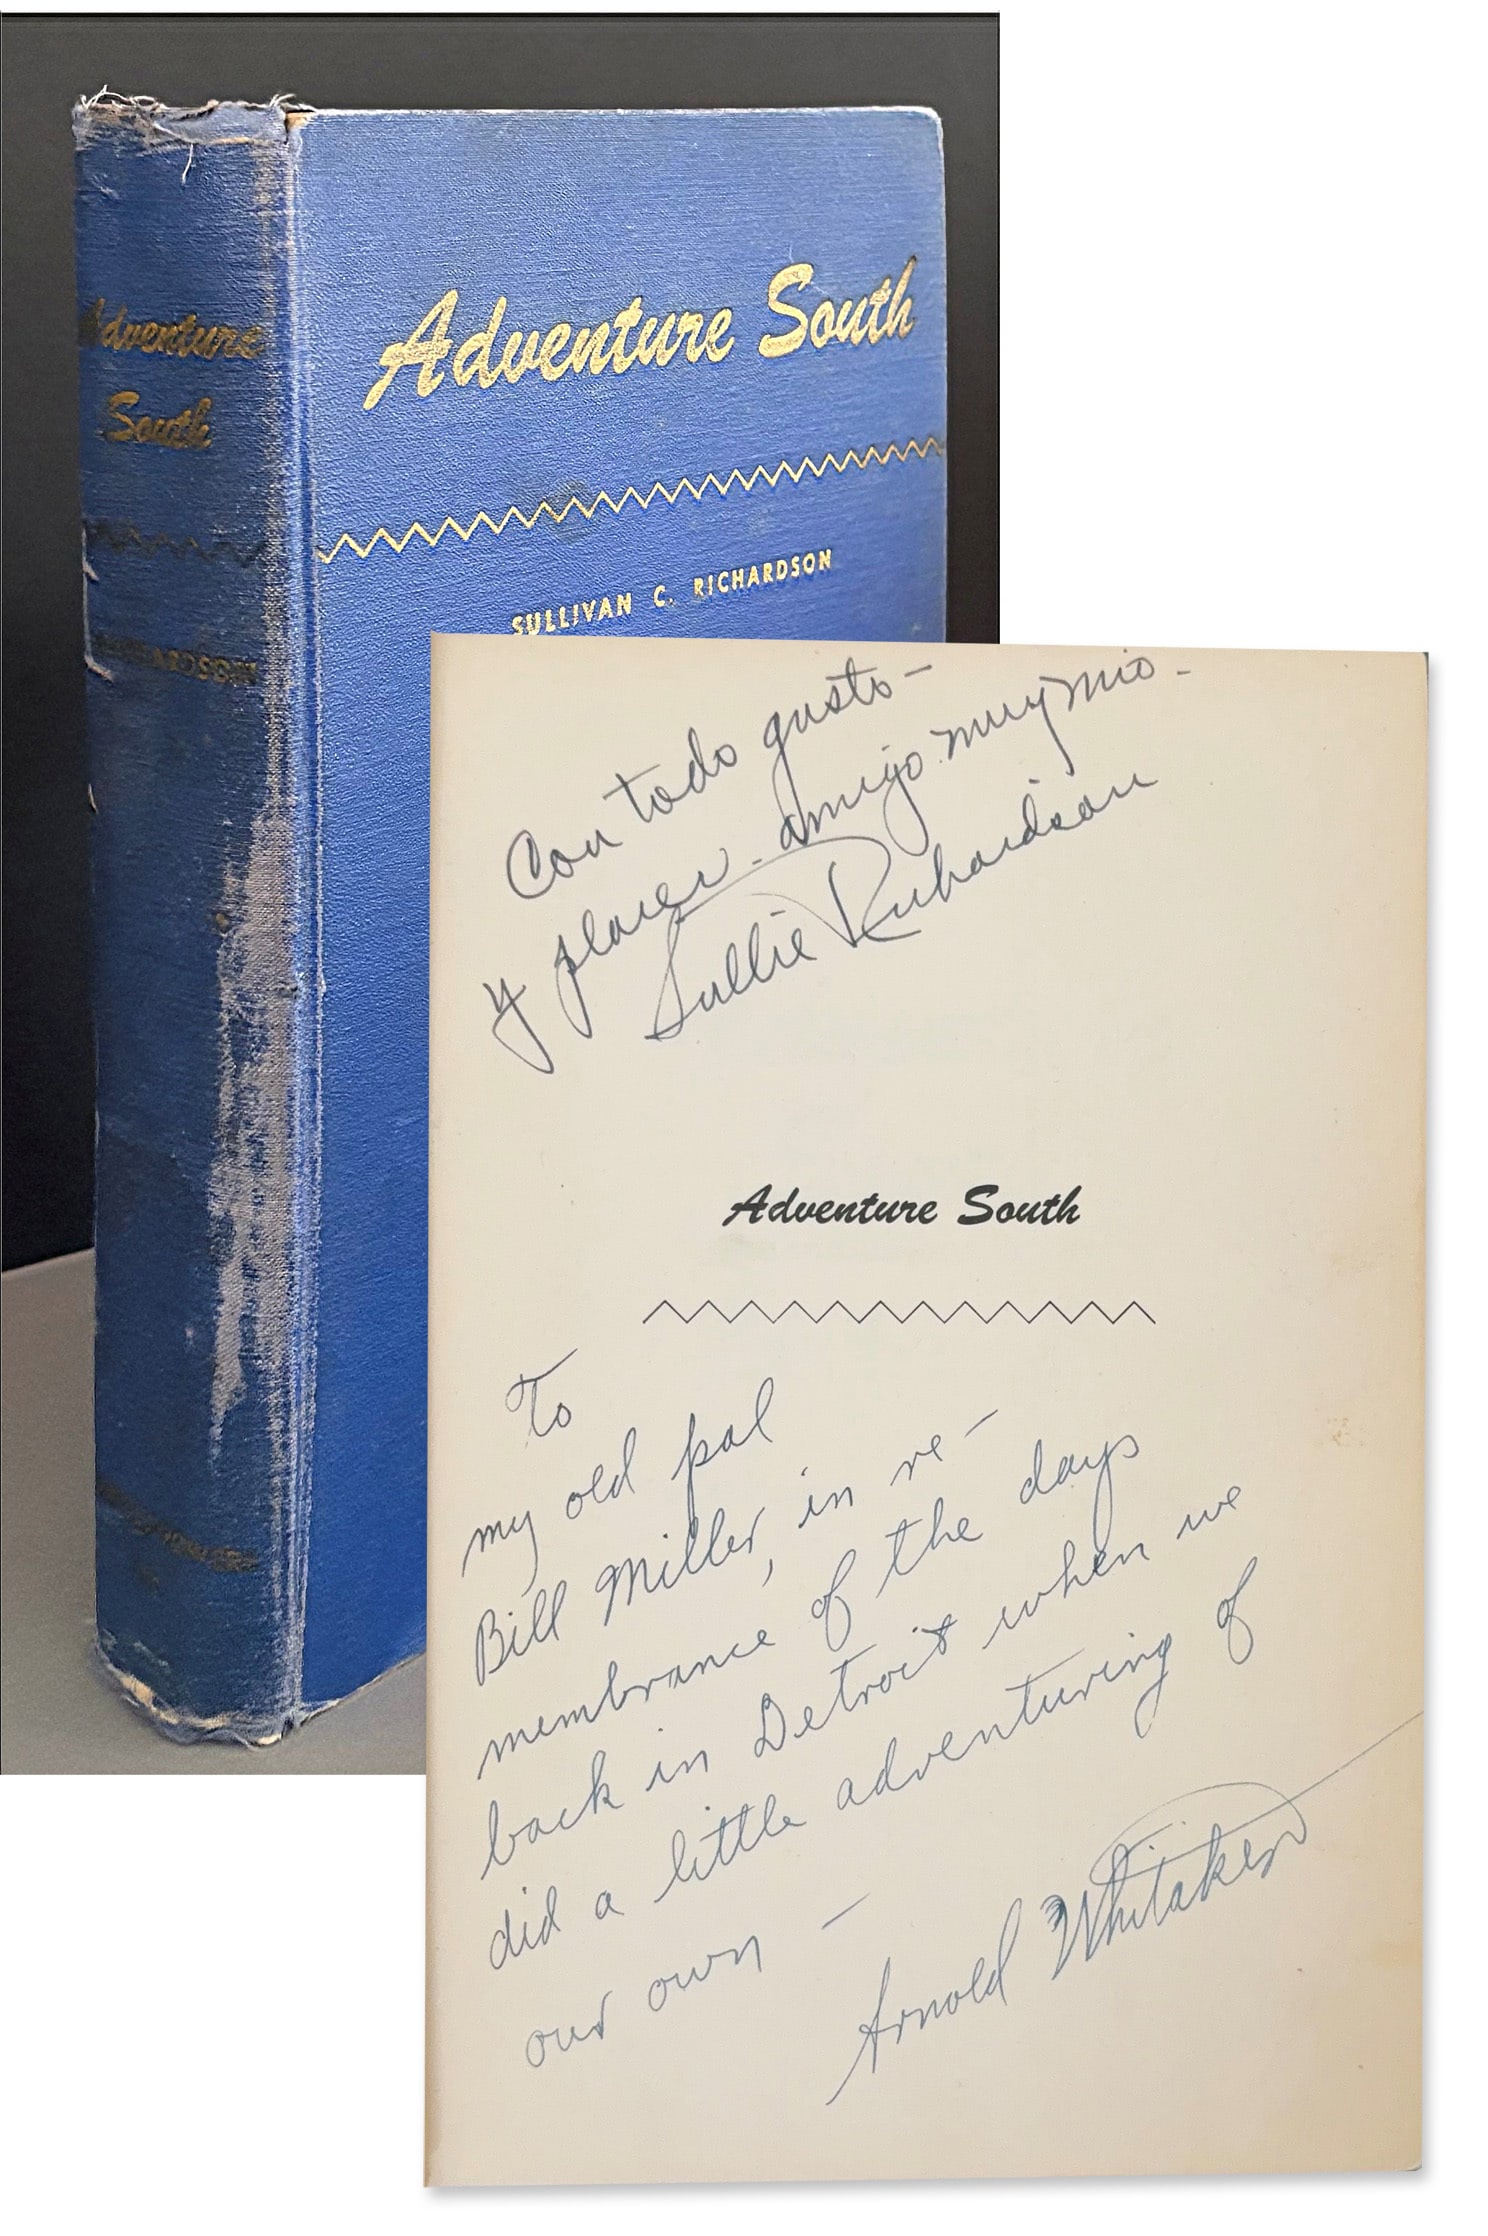 Adventure
South
Adventure South
SULLIVAN C. RICHARDSON
Con todo gusto -
y placer - amigo muy mio -
Sullie Richardson
Adventure South
To
my old pal
Bill Miller, in re-
membrance of the days
back in Detroit when we
did a little adventuring of
our own -
Arnold Whitaker